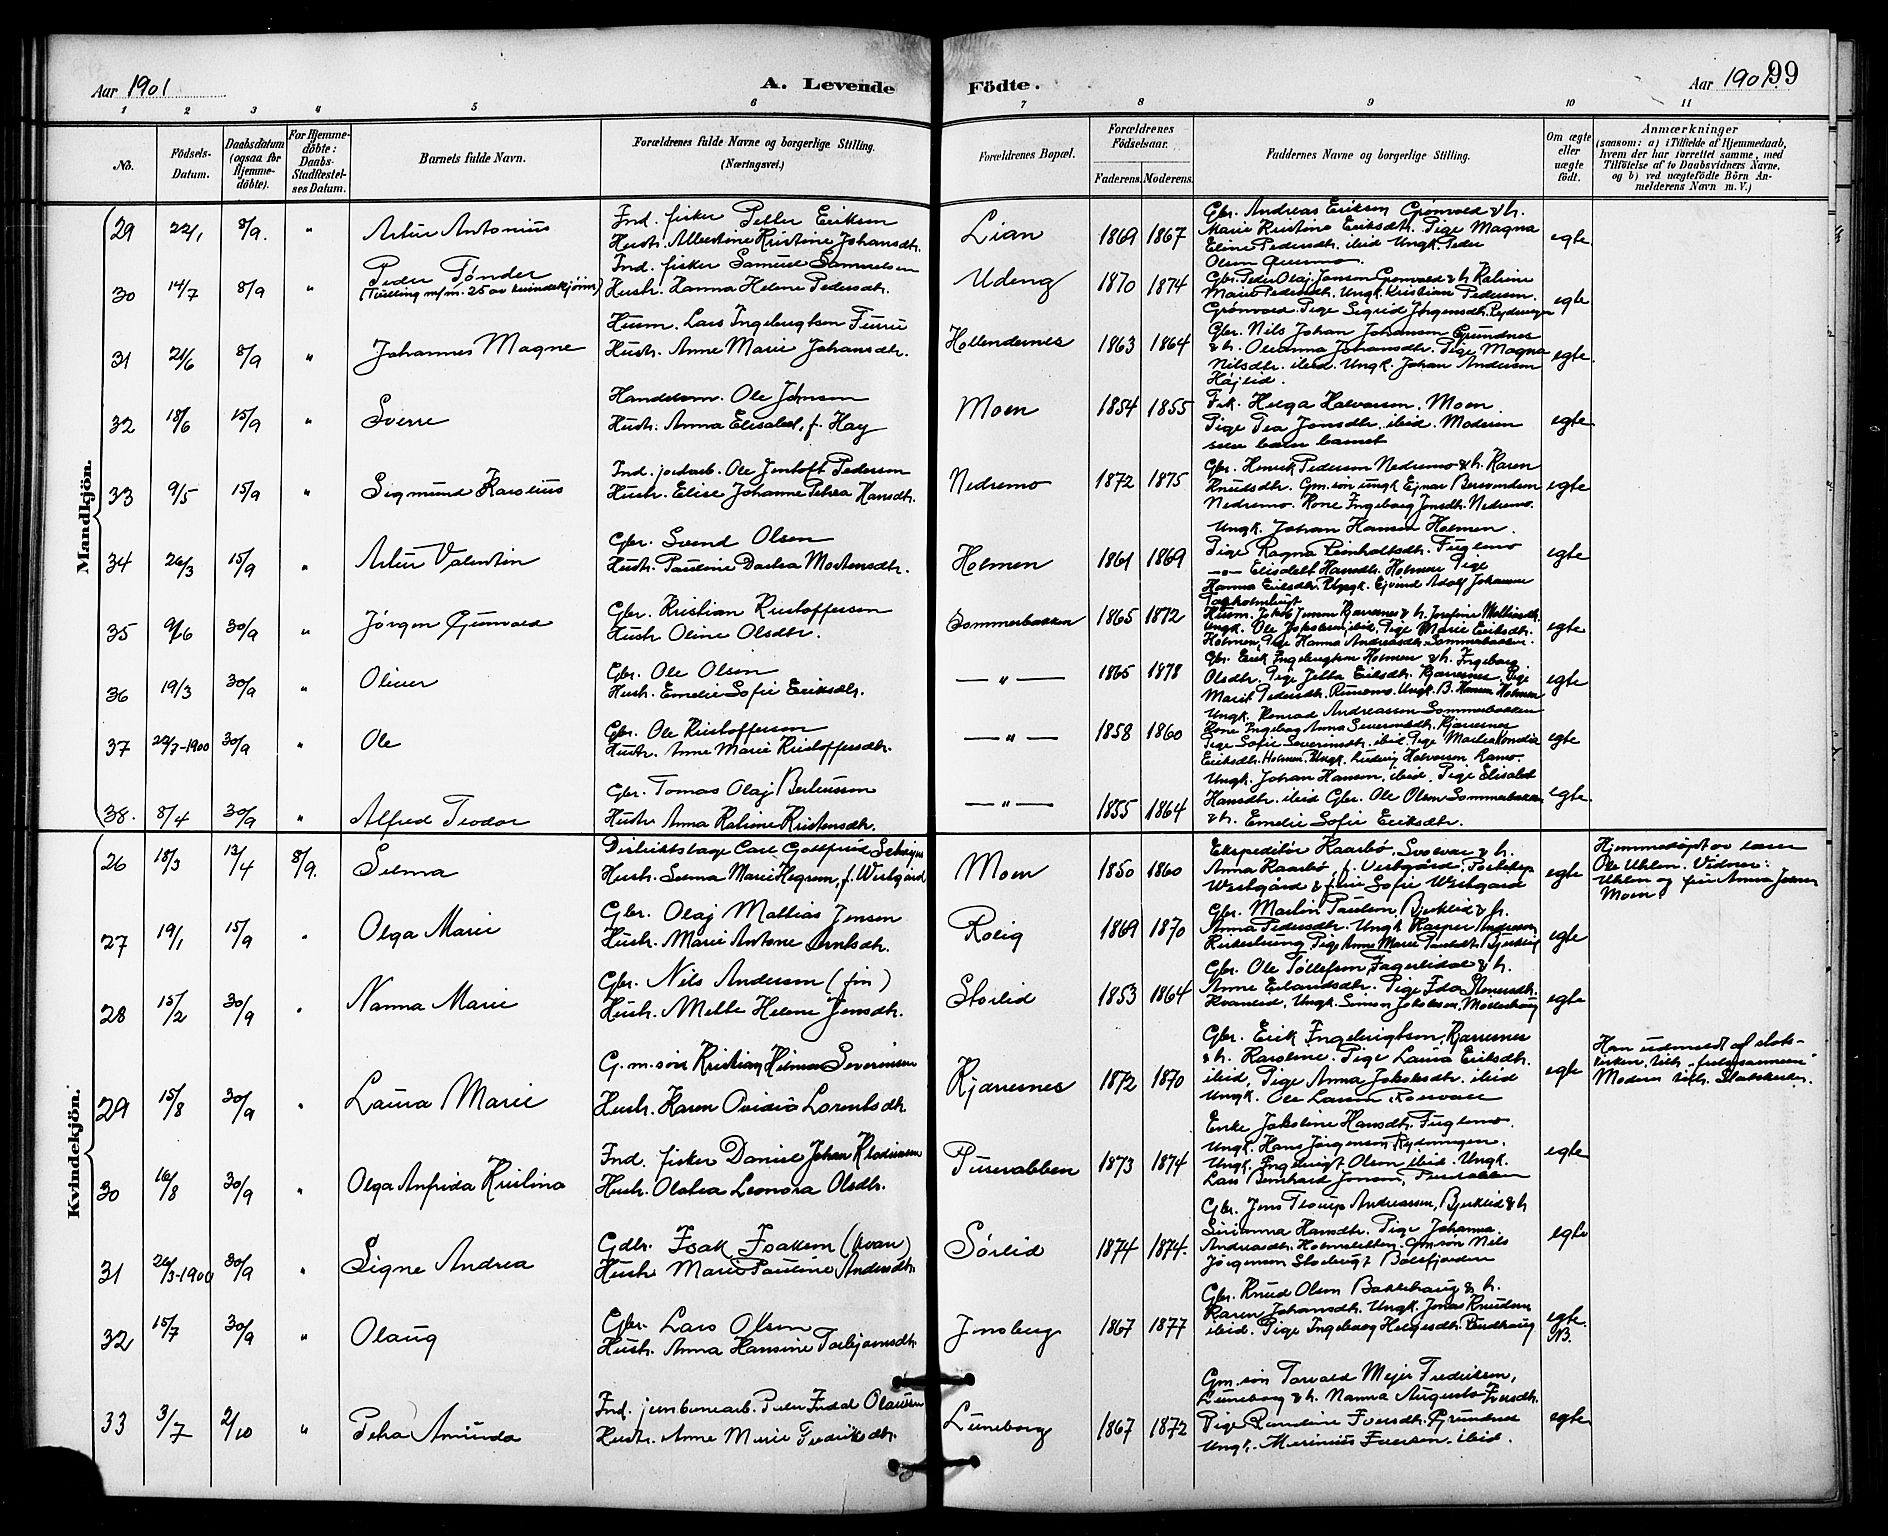 Aar 1901
A. Levende Födte.
Aar 1901. 99
1 2 3 4 5 6 7 8 9 10 11
No.
Födsels-Datum.
Daabsdatum (ogsaa för Hjemme-döbte).
For Hjemme-döbte: Daabs-Stadfæstel-ses Datum.
Barnets fulde Navn.
Forældrenes fulde Navne og borgerlige Stilling. (Næringsvei.)
Forældrenes Bopæl.
Forældrenes Födselsaar.
Faderens. Moderens.
Faddernes Navne og borgerlige Stilling.
Om ægte eller uægte födt.
Anmærkninger
(saasom: a) i Tilfælde af Hjemmedaab,
hvem der har forrettet samme, med
Tilföielse af to Daabsvidners Navne,
og b) ved uægtefödte Börn An-
melderens Navn m. V.)
Mandkjön.
29 22/1 8/9. " Artur Antonius
Ind. fisker Petter Eriksen
Hustr. Albertine Kristine Johansdtr.
Lian 1869 1867
Gbr. Andreas Eriksen Grönvold & h.
Marie Kristine Eriksdtr. Pige Magna
Eline Pedersdtr. ibid Ungk. Peder
Olsen
egte
30 14/7 8/9 " Peder Tönder
(Tvilling m/m. 25 av kvindekjönn)
Ind. fisker Samuel Samuelsen
Hustr. Hanna Helene Pedersdtr.
Udeng 1870 1874
Gbr. Peder Olaj Jensen Grönvold & h. Katrine
Marie Pedersdtr. Ungk. Kristian Pedersen
Grönvold. Pige Sigrid Jörgensdtr. Rydningen
egte
31 21/6 8/9 " Johannes Magne
Husm. Lars Ingebrigtsen Furru
Hustr. Anne Marie Johansdtr.
Hollendernes 1863 1864
Gbr. Nils Johan Johansen Grundnes
& h. Oleanna Johansdtr. Pige Magna
Nilsdtr. ibid. Ungk. Johan Andersen
Höjlid.
egte.
32 18/6 15/9 " Sverre
Handelsm. Ole Jensen
Hustr. Anna Elisabet, f. Hay
Moen 1854 1855
Frk. Helga Halvorsen. Moen.
Pige Pea Jonsdtr. ibid. Moderen
selv bar barnet
egte
33 9/5 15/9 " Sigmund Karelius
Ind. jordarb. Ole Jentoft Pedersen
Hustr. Elise Johanne Petra Hansdtr.
Nedremo 1872 1875
Gbr. Henrik Pedersen Nedremo & h. Karen
Knudsdtr. Gm.sön ungk Ejnar Berntsen
Nedremo. Kone Ingeborg Jonsdtr. Nedremo.
egte
34 26/3 15/9 " Artur Valentin
Gbr. Svend Olsen
Hustr. Pauline Dortea Mortensdtr.
Holmen 1861 1869
Ungk. Johan Hansen Holmen.
Pige Ragna Reinholtsdtr. Fuglemo
—"— Elisabet Hansdtr. Holmen Pige
Hanna Eriksdtr. Ungk. Ejvind Adolf Johansen
egte
35 9/6 30/9 " Jörgen Gunvald
Gbr. Kristian Kristoffersen
Hustr. Oline Olsdtr.
Sommerbakken 1865 1872
Husm. Jakob Jensen Kjærresnes & h. Josefine Mathisdtr.
Ungk. Ole Jakobsen ibid. Pige Marie Eriksdtr.
Holmen, Pige Hanna Andreasdtr. Sommerbakken.
egte
36 19/3 30/9 " Oliver
Gbr. Ole Olsen
Hustr. Emelie Sofie Eriksdtr.
— " — 1865 1878
Gbr. Erik Ingebrigtsen Holmen & h. Ingeborg
Olsdtr. Pige Jetta Eriksdtr. Kjærresnes, Pige
Marit Pedersdtr. Rusemo. Ungk. B. Hansen Holmen
egte
37 22/7-1900 30/9 " Ole
Gbr. Ole Kristoffersen
Hustr. Anne Marie Kristoffersdtr.
— " — 1858 1860
Ungk. Konrad Andreassen Sommerbakken
Kone Ingeborg Anna Severinsdtr. Kjærresnes
Pige Sofie Severinsdtr. ibid. Pige Martea
Eriksdtr. Holmen. Ungk. Ludvig Halvorsen Ramo.
egte
38. 8/4 30/9 " Alfred Teodor
Gbr. Tomas Olaj Berteussen
Hustr. Anna Katrine Kristensdtr.
— " — 1855 1864
Ungk. Johan Hansen, ibid. Pige Elisabet
Hansdtr. ibid Gbr. Ole Olsen Sommerbakken
& h. Emelie Sofie Eriksdtr.
egte.
Kvindekjön.
26 18/3 13/4 8/9. Selma
Distriktslæge Carl Gottfried
Hustr. Selma Marie Hegrem, f. Westgård
Moen 1850 1860
Ekspeditör Kaarbö. Svolvær & h.
Anna Kaarbö f. Vestgård.
Westgård & frue Sofie Westgård
egte
Hjemmedöpt av lærer
Ole Uhlen. Vidner:
Uhlen og frue Anna Jensen
Moen.
27 19/1 15/9 " Olga Marie
Gbr. Olaj Mattias Jensen
Hustr. Marie Antone Arntsdtr.
Rolig 1869 1870
Gbr. Martin Paulsen Bjerklid & h.
Anna Pedersdtr. Ungk Kasper Andersen
Pige Anne Marie Paulsdtr. Bjerklid
egte
28 15/2 30/9 " Nanna Marie
Gbr. Nils Andersen (fin)
Hustr. Mette Helene Jensdtr.
Storlid 1853 1864
Gbr. Ole Tollefsen Fagerlidal & h.
Anne Erlandsdtr. Pige Ida
Kvanlid. Ungk. Simon Jakobsen,
egte
29 15/8 30/9 " Laura Marie
G.m.sön Kristian Hilmar Severinsen
Hustr. Karen Ovidia Lorentsdtr.
Kjærresnes 1872 1870
Gbr. Erik Ingebrigtsen. Kjærresnes
& h. Karoline. Pige Laura Eriksdtr.
ibid, Pige Anna Jakobsdtr. ibid
Ungk. Ole Larsen
egte
Han udmeldt af stats-
kirken, tilh. „frelsesarmeen"
Moder tilh. Statskirken.
30 16/8 30/9 " Olga Anfrida Kristina
Ind. fisker Daniel Johan Klodiussen
Hustr. Olatea Leonora Olsdtr.
Tuserabben 1873 1874
Enke Jakobine Hansdtr. Fuglemo.
Ungk. Hans Jörgensen Rydningen.
Ungk. Ingebrigt Olsen ibid. Ungk.
Lars Bernhard Jensen,
egte
31 26/3-1900 30/9 " Signe Andrea
Gdbr. Isak Isaksen (kvæn)
Hustr. Marie Pauline Andersdtr.
Sörlid 1874 1874.
Gbr. Jens Troup Andreassen, Bjerklid & h
Sirianna Hansdtr. Pige Johanna
Andreasdtr. Holmsletten. Gmsön Nils
Jörgensen Storbugt Balsfjorden
egte
32 15/7 30/9 " Olaug
Gbr. Lars Olsen
Hustr. Anna Hansine Torbjörnsdtr.
Jonsberg 1867 1877
Gbr. Knud Olsen Bakkehaug & h.
Karen Johansdtr. Ungk. Jonas Knudsen
ibid. Pige Ingeborg Helgesdtr. Rundhaug
egte.
NB.
33 3/7 2/10 " Petra Amunda
Ind. jernbanearb. Peder Fredd Olausen
Hustr. Anne Marie Fredriksdtr.
Luneborg 1867 1872
Gm.sön Torvald Mejer Fredriksen,
Luneborg & h. Nanna Augusta Iversdtr.
Pige Randine Iversdtr. Grundnes
Ungk. Marinius Iversen. ibid.
egte